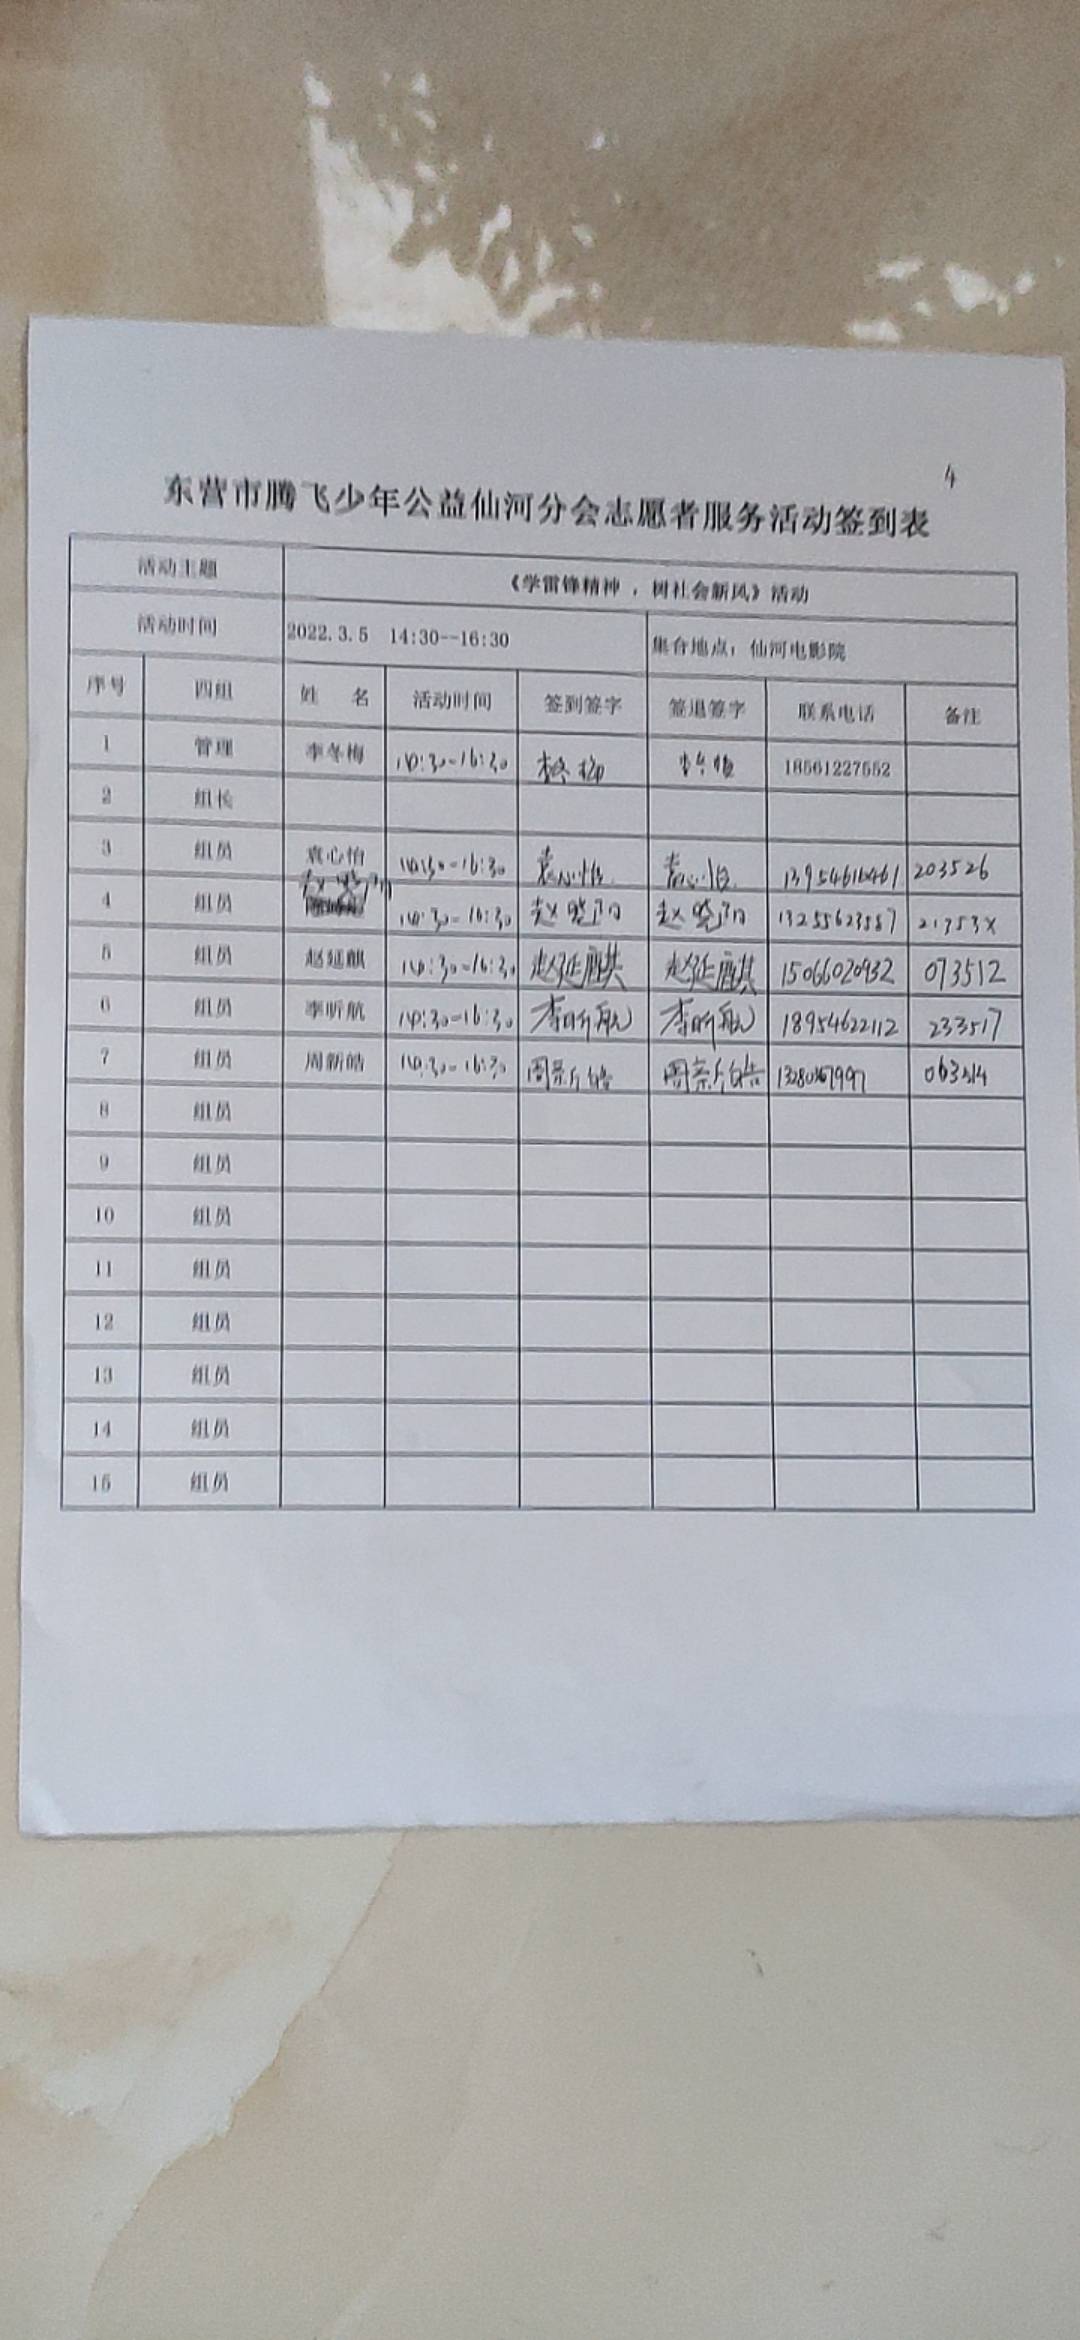 4
东营市腾飞少年公益仙河分会志愿者服务活动签到表
活动主题 《学雷锋精神 ，树社会新风》活动
活动时间 2022.3.5 14:30--16:30 集合地点：仙河电影院
序号 四组 姓 名 活动时间 签到签字 签退签字 联系电话 备注
1 管理 李冬梅 14:30-16:30 李冬梅 18561227552
2 组长
3 组员 袁心怡 14:30-16:30 袁心怡 袁心怡 203526
4 组员 赵晓阳 14:30-16:30 赵晓阳 赵晓阳 13255623587 21353X
5 组员 赵延麒 14:30-16:30 赵延麒 赵延麒 15066020932 073512
6 组员 李昕航 14:30-16:30 李昕航 李昕航 18954622112 233517
7 组员 周新皓 14:30-16:30 周新皓 周新皓
8 组员
9 组员
10 组员
11 组员
12 组员
13 组员
14 组员
15 组员